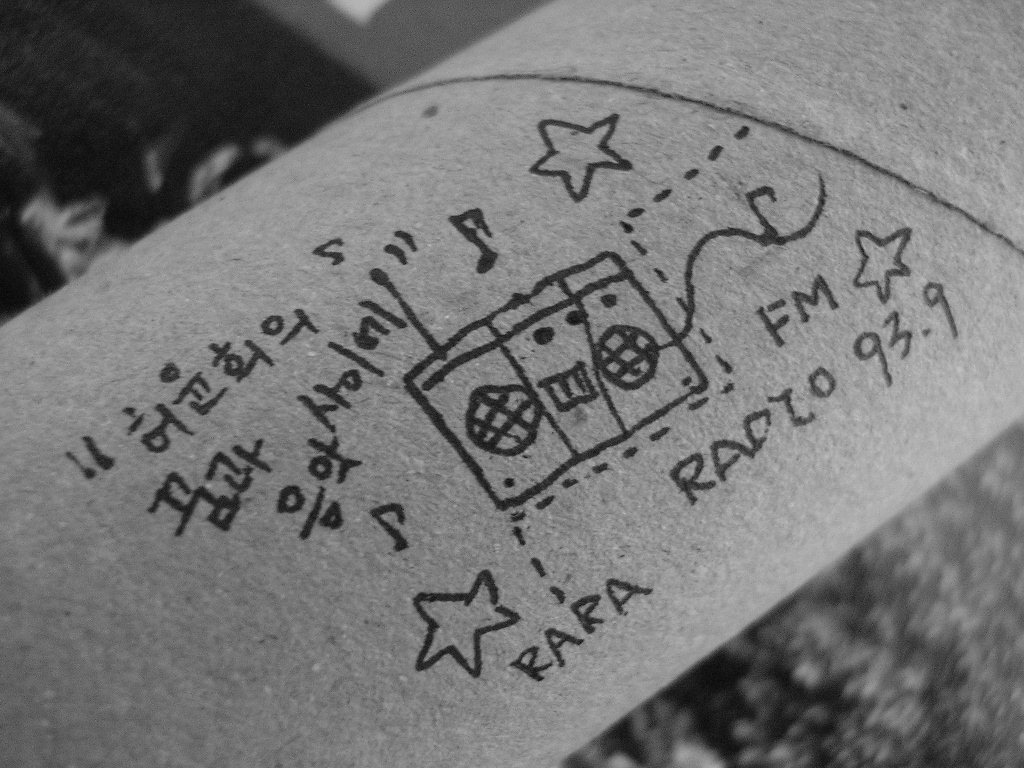 “ 허윤희의
꿈과 음악 사이에 ”
FM
RADIO 93.9
RARA